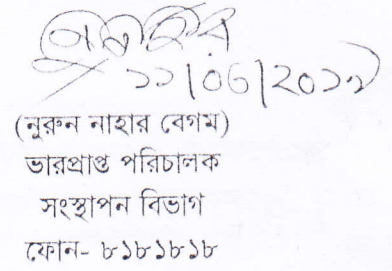 ১১/06/20১৯
(নুরুন নাহার বেগম)
ভারপ্রাপ্ত পরিচালক
সংস্থাপন বিভাগ
ফোন- ৮১৮১৮১৮